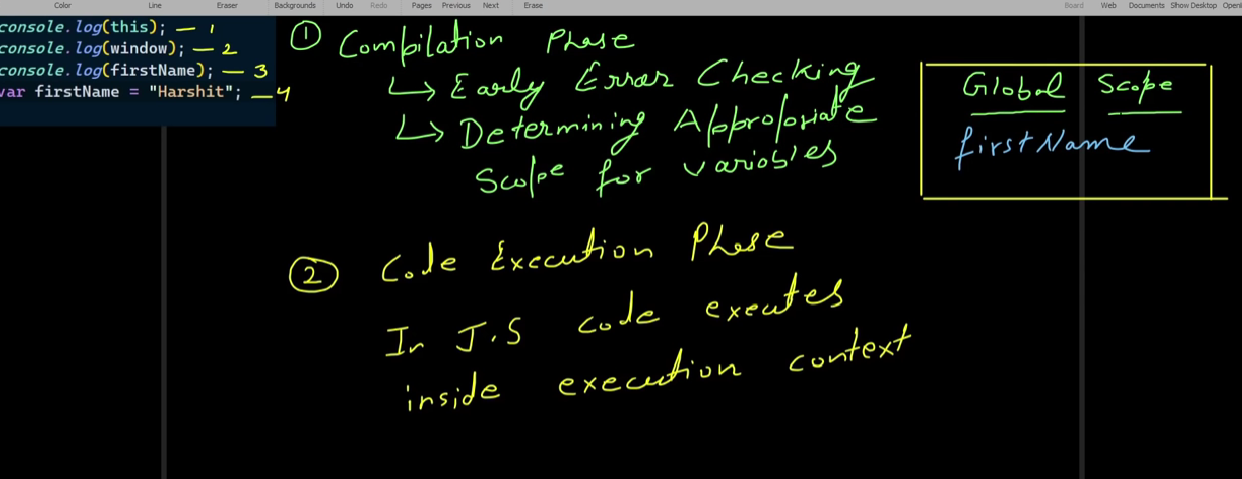 Color Line Eraser Backgrounds Undo Redo Pages Previous Next Erase Board Web Documents Show Desktop Open
console.log(this); — 1
console.log(window); — 2
console.log(firstName); — 3
var firstName = "Harshit"; — 4
① Compilation Phase
↳ Early Error Checking
↳ Determining Appropriate
Scope for variables
Global Scope
firstName
② Code Execution Phase
In J.S code executes
inside execution context